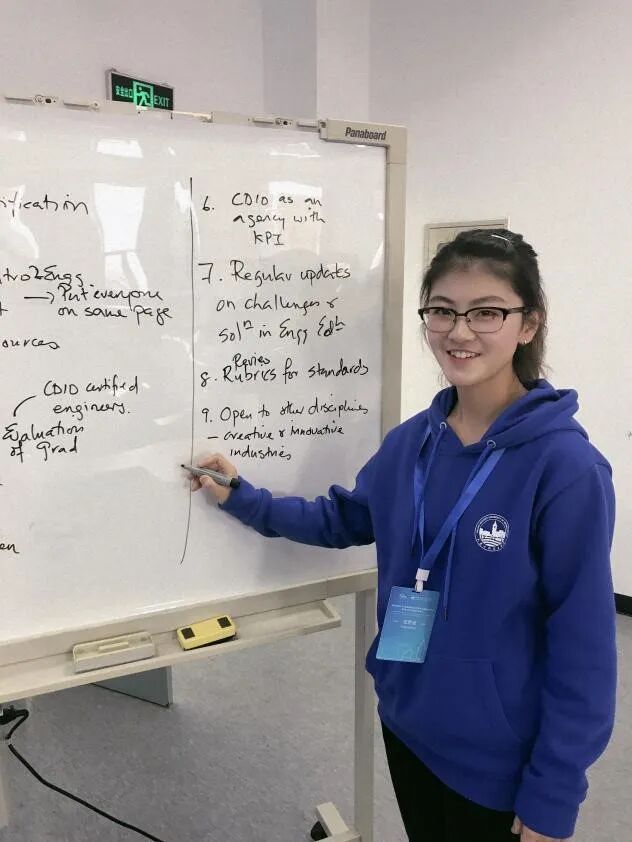 安全出口 EXIT
Panaboard
ification
Intro2Engg
→ Put everyone
on same page
ources
CDIO certified
engineers.
Evaluation
of Grad
en
6. CDIO as an
agency with
KPI
7. Regular updates
on challenges &
Solⁿ in Engg Edⁿ
Review
8. Rubrics for standards
9. Open to other disciplines
– creative & innovative
industries